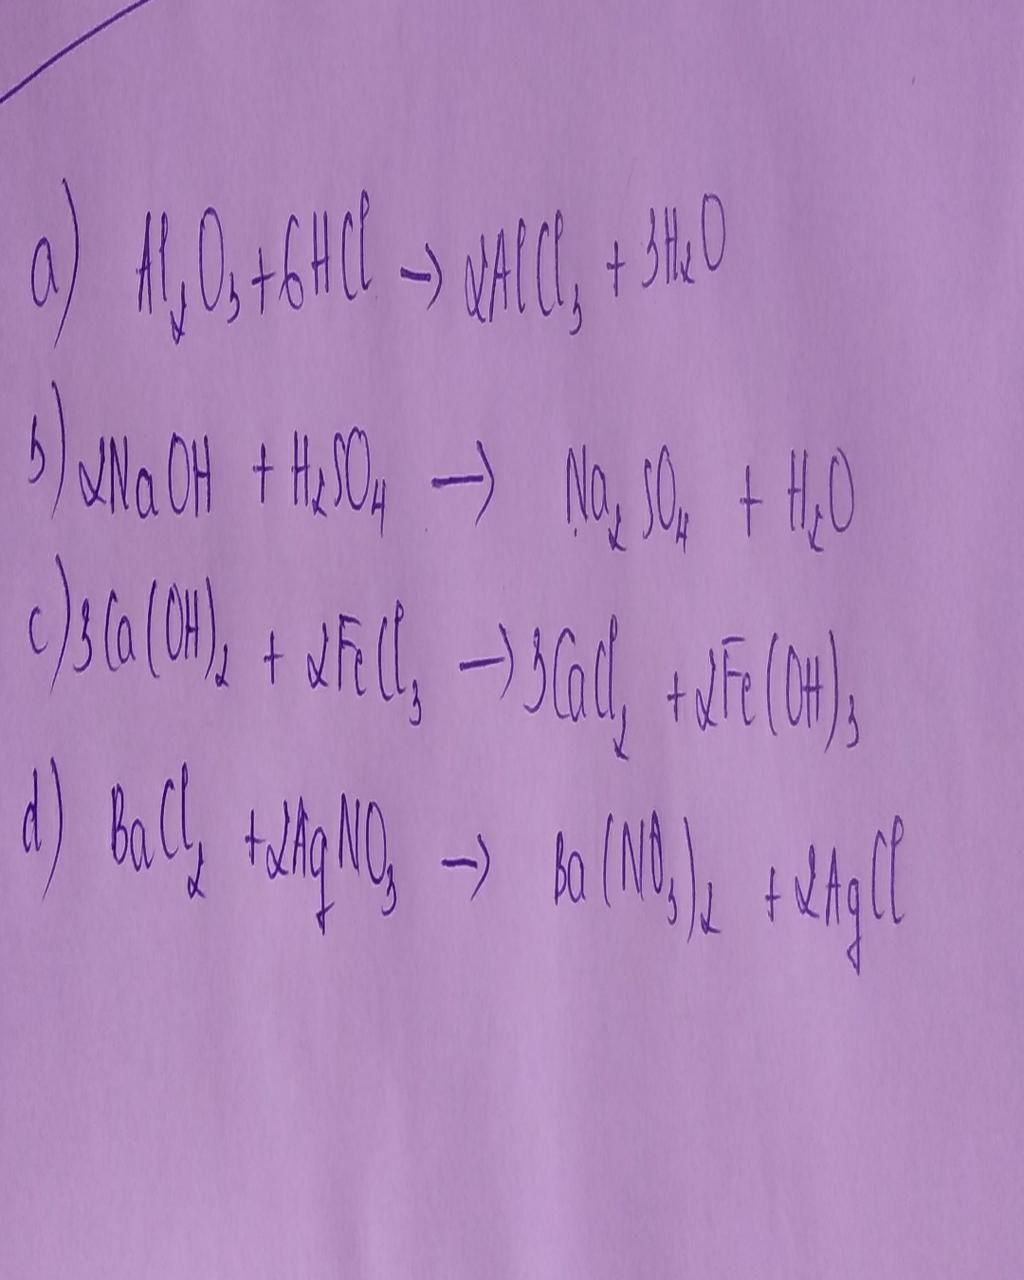 a) Al₂O₃ + 6HCl → 2AlCl₃ + 3H₂O
b) 2NaOH + H₂SO₄ → Na₂SO₄ + H₂O
c) 3Ca(OH)₂ + 2FeCl₃ → 3CaCl₂ + 2Fe(OH)₃
d) BaCl₂ + 2AgNO₃ → Ba(NO₃)₂ + 2AgCl